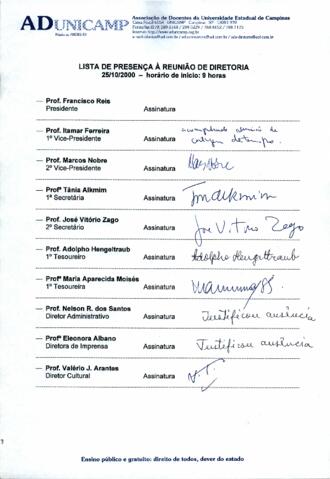 ADUNICAMP
Associação de Docentes da Universidade Estadual de Campinas
LISTA DE PRESENÇA À REUNIÃO DE DIRETORIA
25/10/2000 – horário de início: 9 horas
— Prof. Francisco Reis
Presidente Assinatura
— Prof. Itamar Ferreira
1º Vice-Presidente Assinatura
— Prof. Marcos Nobre
2º Vice-Presidente Assinatura
— Profª Tânia Alkmim
1ª Secretária Assinatura
— Prof. José Vitório Zago
2º Secretário Assinatura Zago
— Prof. Adolpho Hengeltraub
1º Tesoureiro Assinatura Adolpho Hengeltraub
— Profª Maria Aparecida Moisés
1º Tesoureira Assinatura
— Prof. Nelson R. dos Santos
Diretor Administrativo Assinatura Justificou ausência
— Profª Eleonora Albano
Diretora de Imprensa Assinatura Justificou ausência
— Prof. Valério J. Arantes
Diretor Cultural Assinatura
Ensino público e gratuito: direito de todos, dever do estado